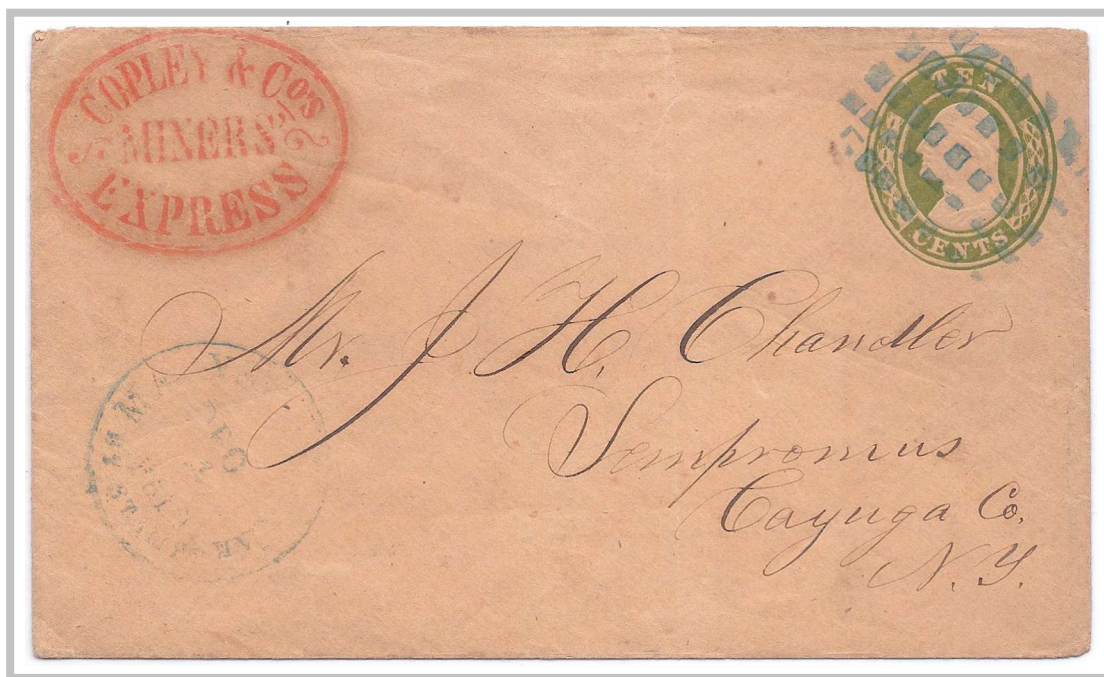 COPLEY & Co's
MINERS'
EXPRESS
TEN
CENTS
Mr. J. H. Chandler
Sempronius
Cayuga Co.
N. Y.